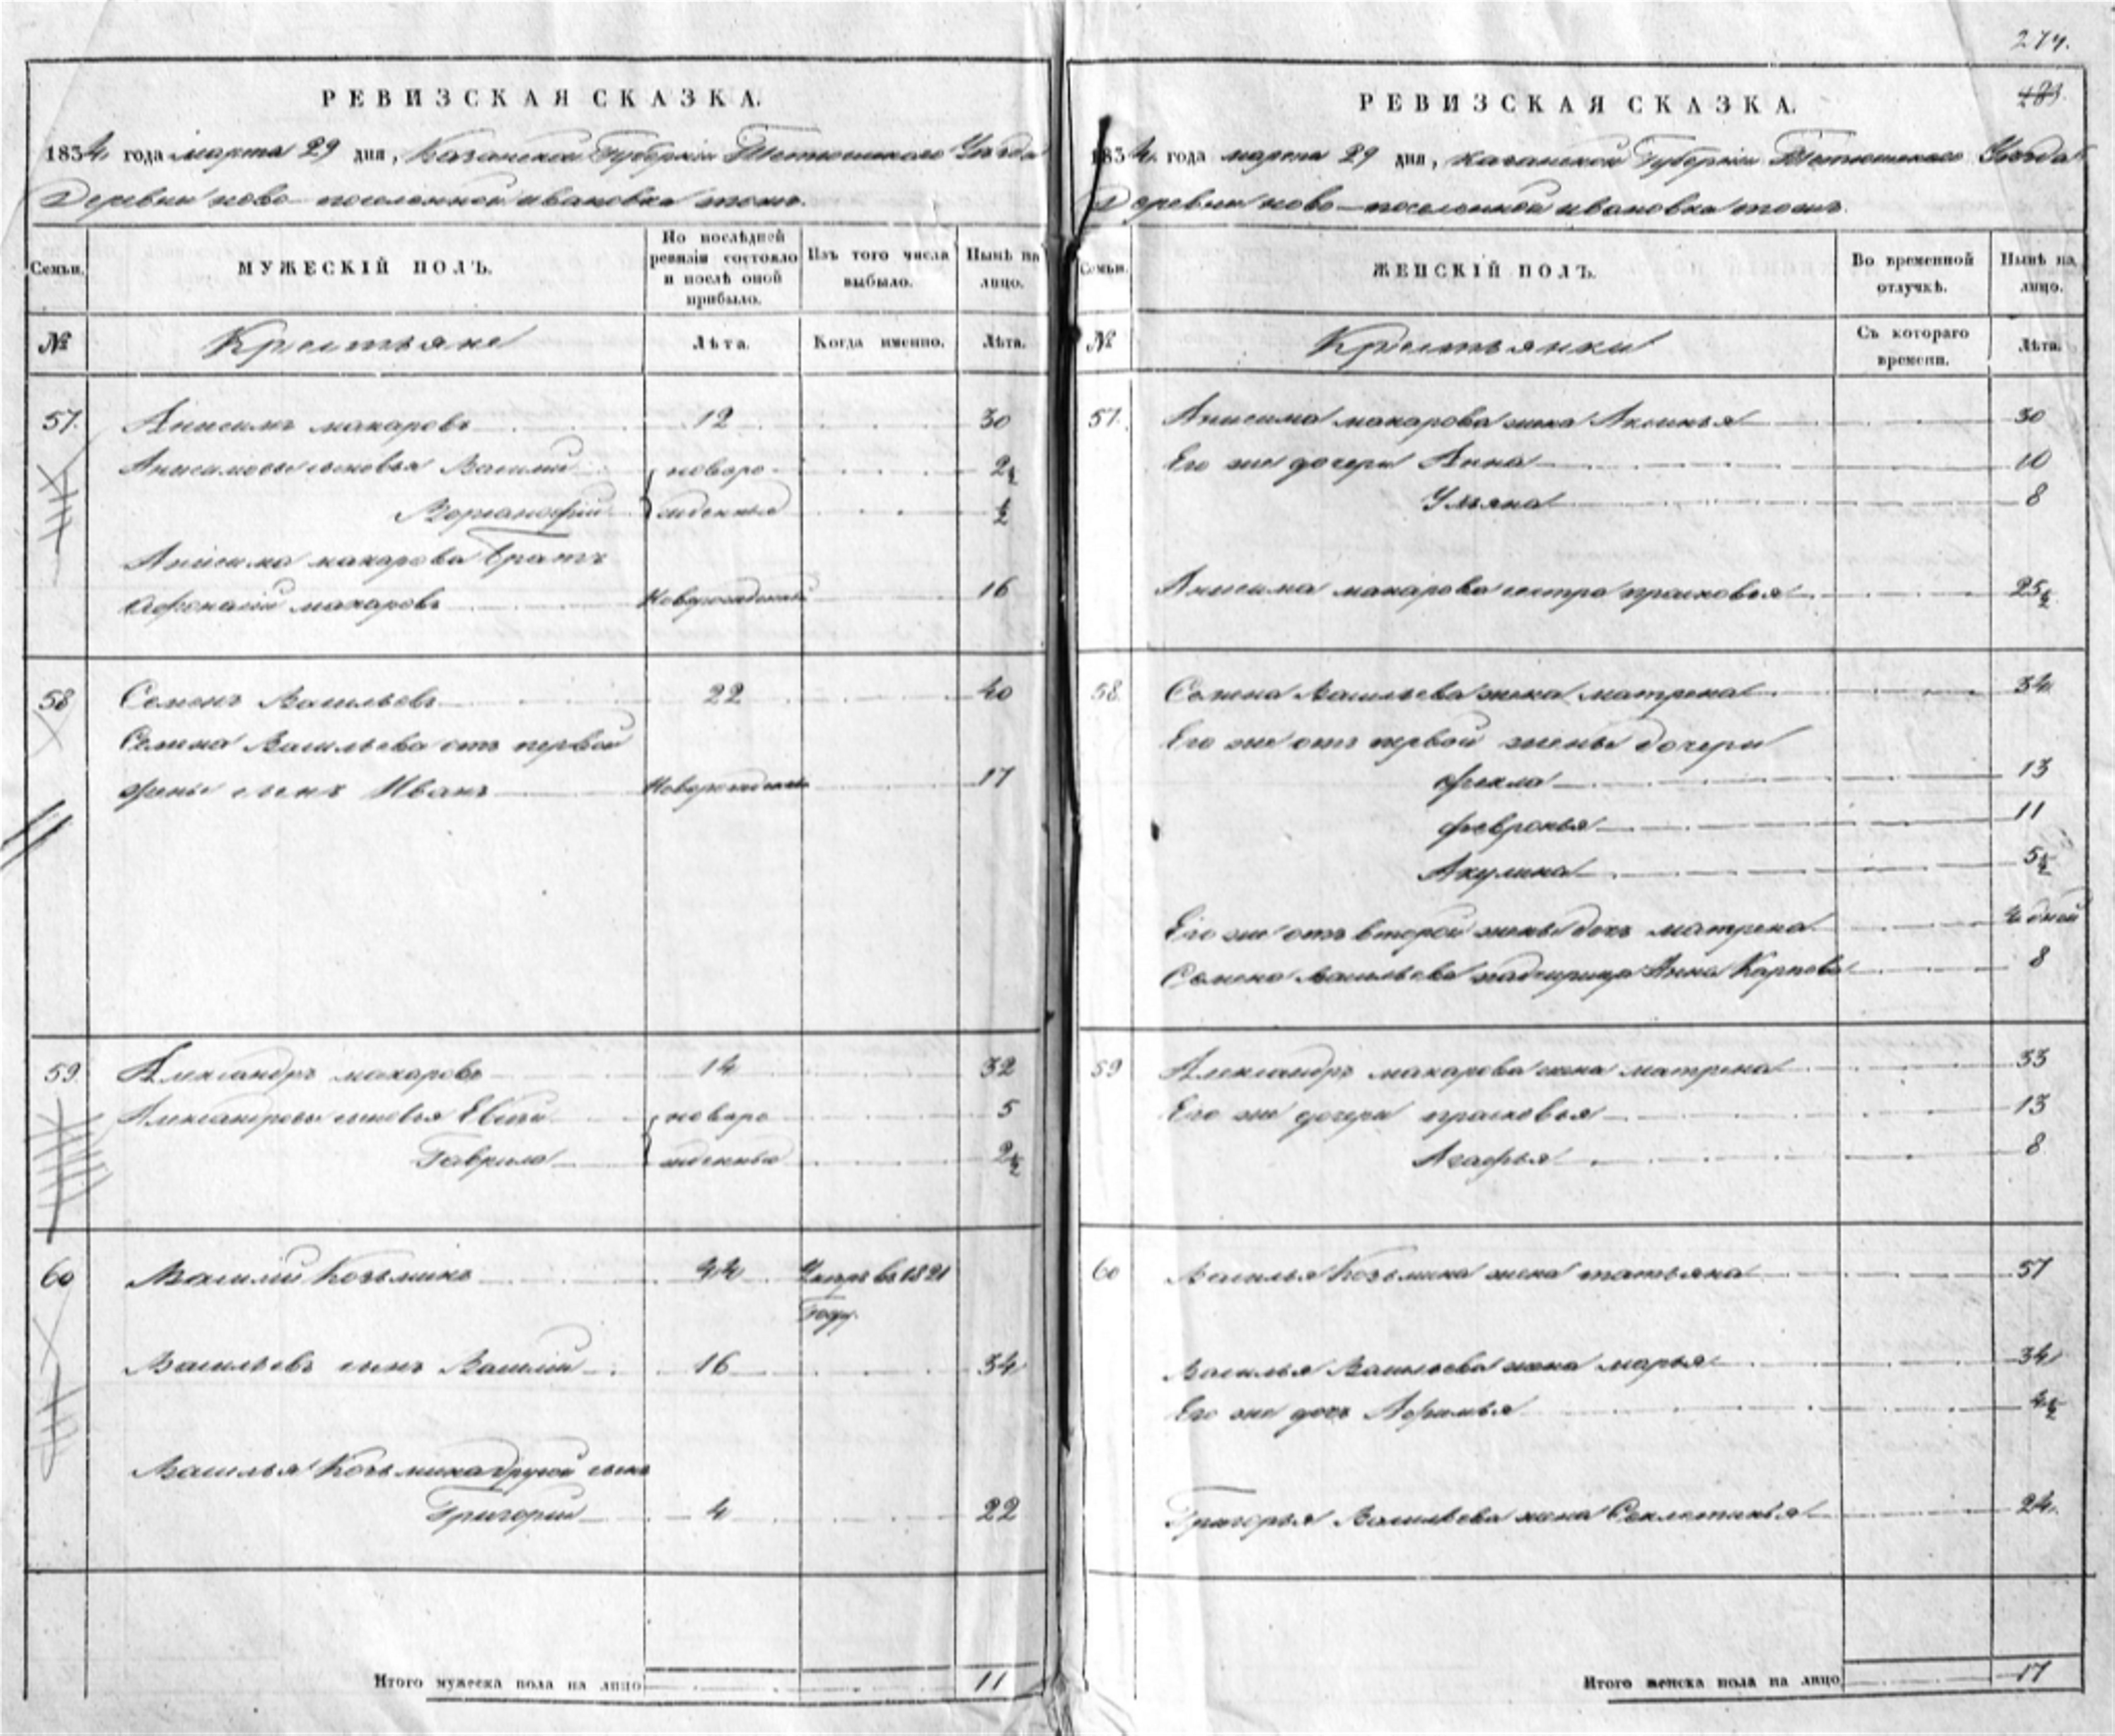 274.
483.
РЕВИЗСКАЯ СКАЗКА.
1834 года марта 29 дня, Казанской Губернiи Тетюшскаго Уѣзда
Деревни ново-поселенной ивановка тожъ.
Семьи.
МУЖЕСКІЙ ПОЛЪ.
По послѣдней ревизіи состояло и послѣ оной прибыло.
Изъ того числа выбыло.
Нынѣ на лицо.
№
Крестьяне
Лѣта.
Когда именно.
Лѣта.
57. Анисимъ макаровъ 12 30
Анисимовы сыновья Василий новоро- 2½
жденныя ½
Анисима макарова братъ
Афонасій макаровъ Новорожденный 16
58 Семенъ Васильевъ 22 40
Семена Васильева отъ первой
жены сынъ Иванъ Новорожденный 17
59. Александръ макаровъ 14 32
Александровы сыновья новоро 5
Гаврила жденныя 2½
60 Василий Козьминъ 44 Умръ въ 1821
Году.
Васильевъ сынъ Василій 16 34
Василья Козьмина другой сынъ
Григорий 4 22
Итого мужеска пола на лицо 11
РЕВИЗСКАЯ СКАЗКА.
1834 года марта 29 дня, Казанской Губернiи Тетюшскаго Уѣзда
Деревни ново-поселенной ивановка тожъ.
Семьи.
ЖЕНСКІЙ ПОЛЪ.
Во временной отлучкѣ.
Нынѣ на лицо.
№
Крестьянки
Съ котораго времени.
Лѣта.
57. Анисима макарова жена Аксинья 30
Его же дочери Анна 10
Ульяна 8
Анисима макарова сестра прасковья 25½
58. Семена Васильева жена матрена 34
Его же отъ первой жены дочери
фекла 13
февронья 11
Акулина 5½
Его же отъ второй жены дочь матрена 4 дней
Семена Васильева падчерица Анна Карпова 8
59 Александръ макарова жена матрена 33
Его же дочери прасковья 13
Агафья 8
60 Василья Козьмина жена татьяна 57
Василья Васильева жена марья 34
Его же дочь 4½
Григорья Васильева жена Секлетинья 24
Итого женска пола на лицо 17